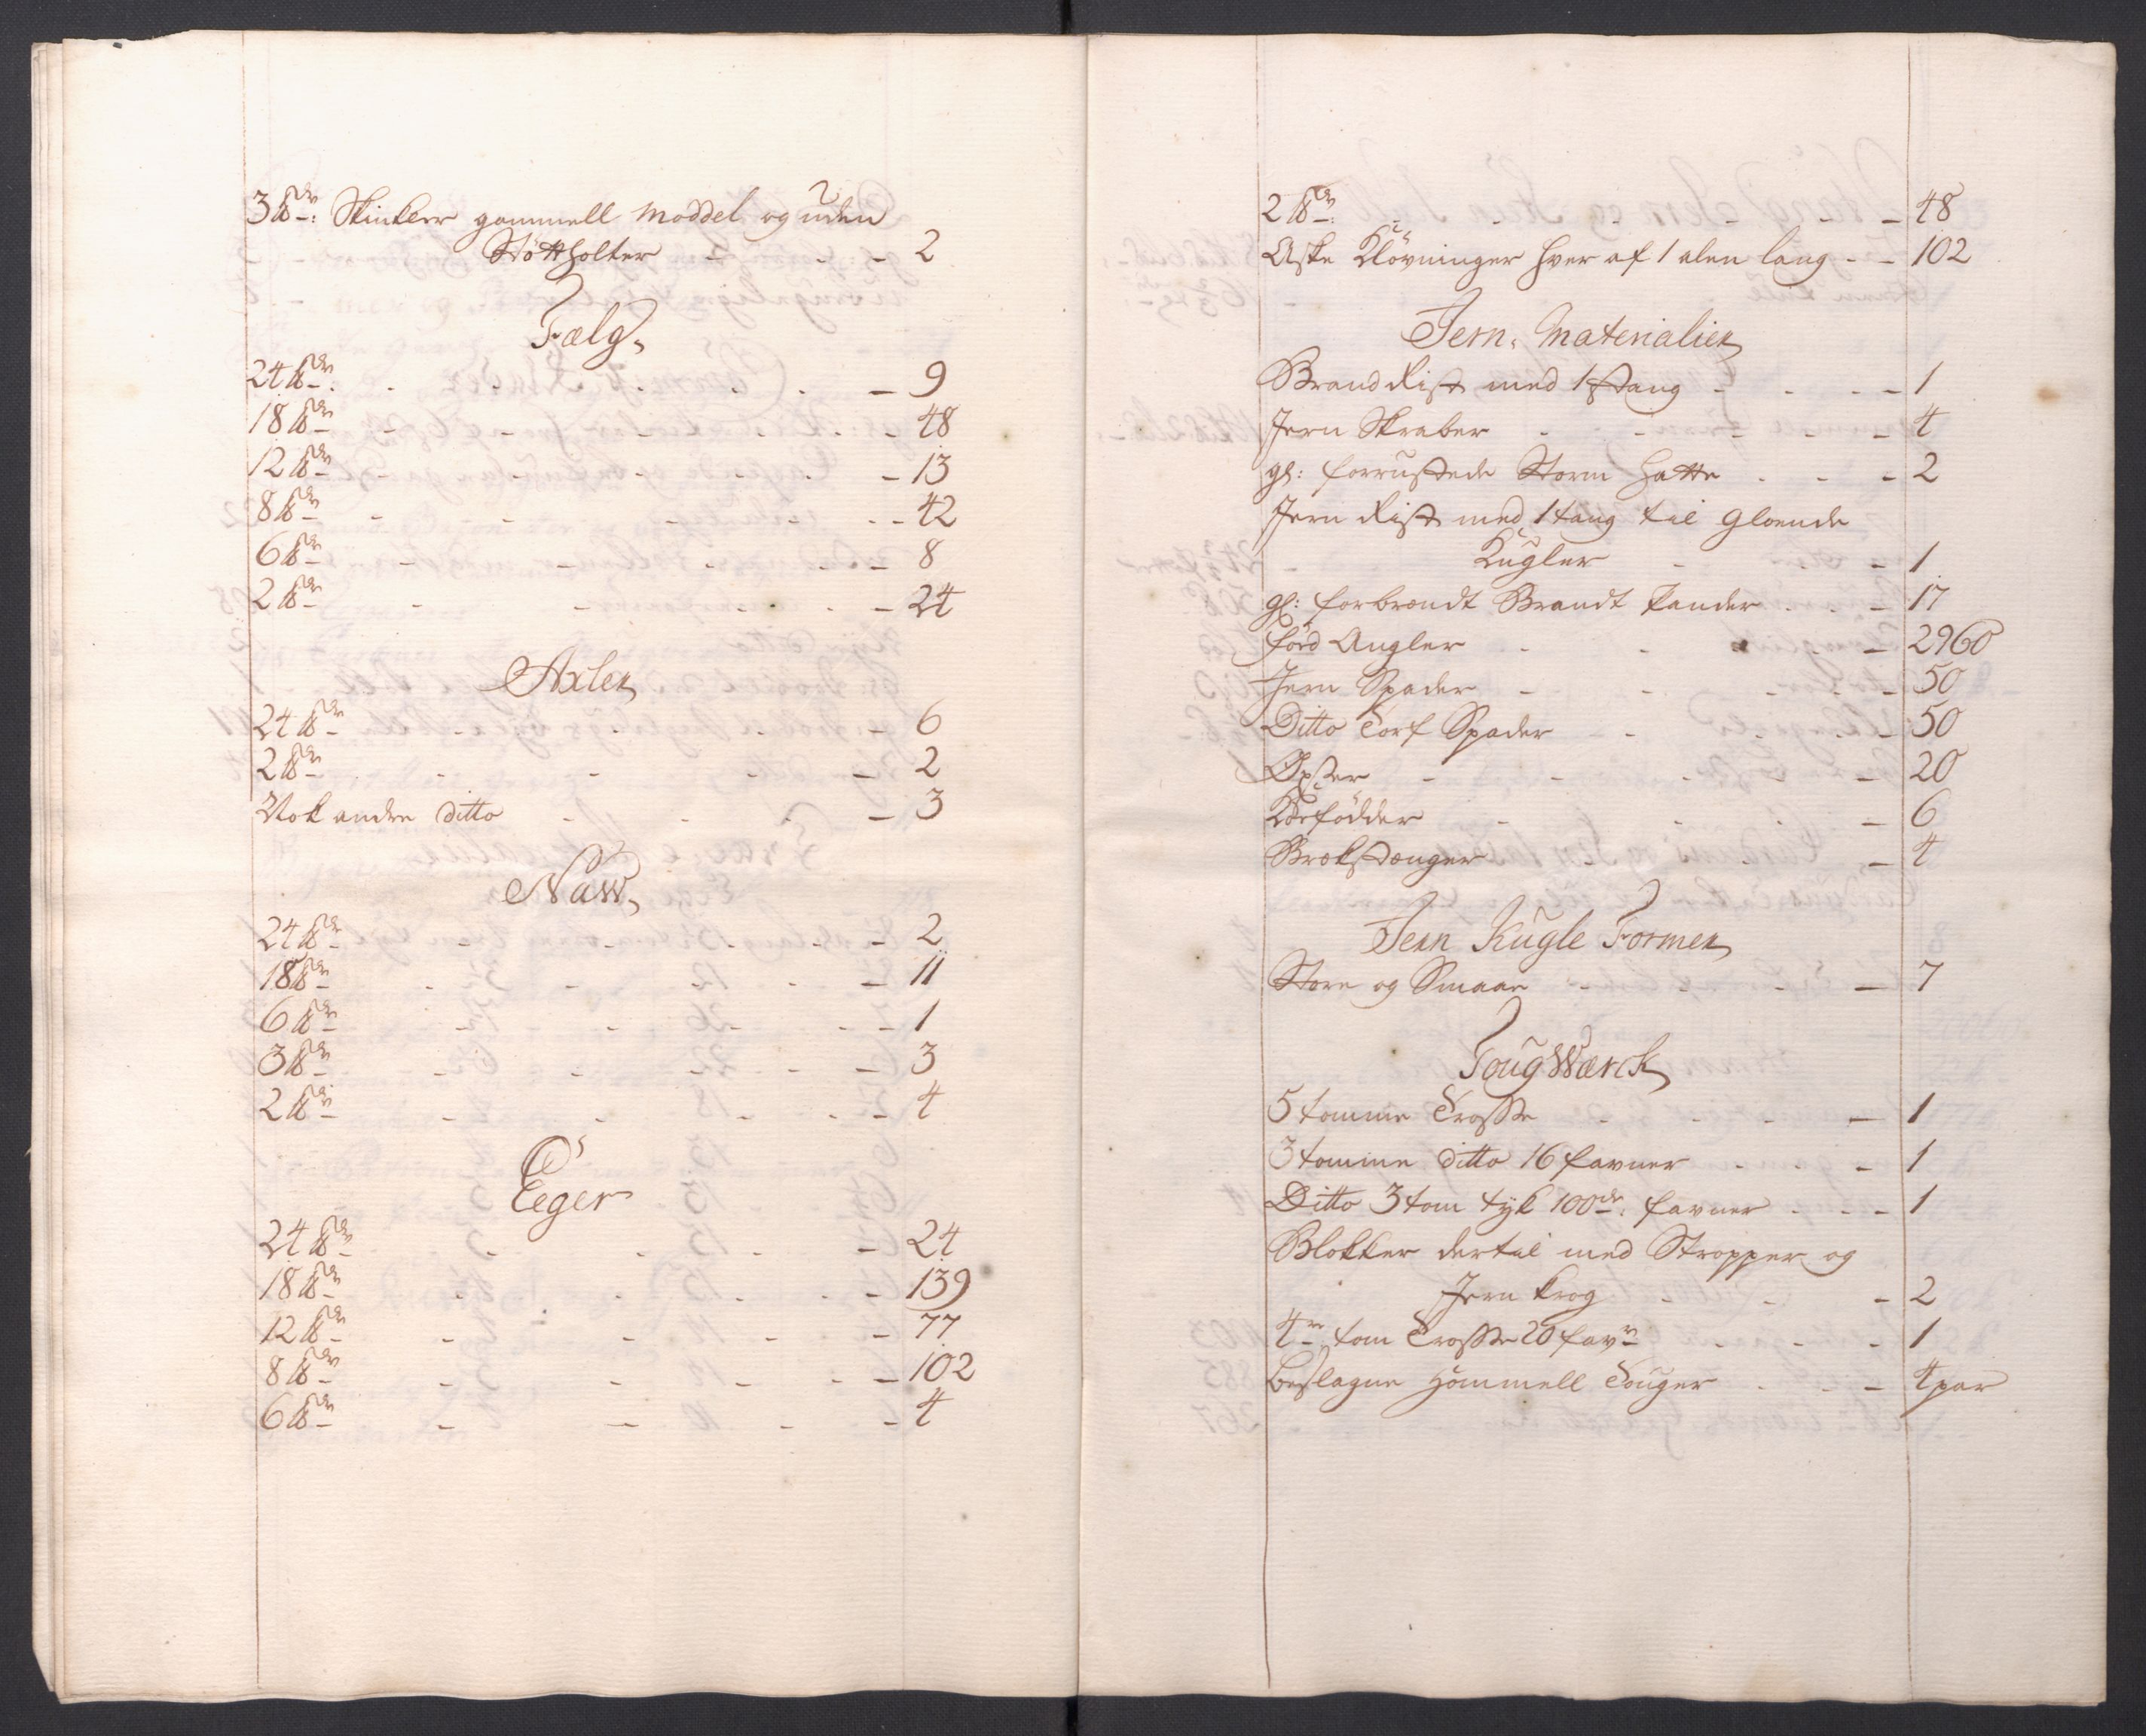 3 ℔dr: Skinkler gammell moddel og uden
Støttholter - - - 2
Fælg,
24 ℔dr: - - - - 9
18 ℔dr - - - - 48
12 ℔dr - - - - 13
8 ℔dr - - - - 42
6 ℔dr - - - - 8
2 ℔dr - - - - 24
Axler
24 ℔dr - - - - 6
2 ℔dr - - - - 2
Nok andre ditto - - - - 3
Naw,
24 ℔dr - - - - 2
18 ℔dr - - - - 11
6 ℔dr - - - - 1
3 ℔dr - - - - 3
2 ℔dr - - - - 4
Eeger
24 ℔dr - - - - 24
18 ℔dr - - - - 139
12 ℔dr - - - - 77
8 ℔dr - - - - 102
6 ℔dr - - - - 4
2 ℔dr: - - - - 48
Aske Kløvninger hver af 1 alen lang - - 102
Jern, Materialier
Brand Rist med 1 Stang - - - 1
Jern Skraber - - - - 4
gl: forrustede Storm Hatte - - - 2
Jern Rist med 1 tang til Gloende
Kugler - - - 1
gl: forbrændt Brandt Rander - - - 17
Fod Angler - - - - 2960
Jern Spader - - - - 50
Ditto Torf Spader - - - - 50
Øxer - - - - 20
Koefødder - - - - 6
Brækstænger - - - 4
Jern Kugle Former
Store og Smaae - - - - 7
Toug Wærck
5 tomme Trosse - - - - 1
3 tomme ditto 16 favner - - - 1
Ditto 3 tom tyk 100de: favner - - - 1
Blokker dertil med Stropper og
Jern krog - - - 2
4re tom Trosse 20 favn - - - 1
Beslagne Hammell Touger - - - 4 par